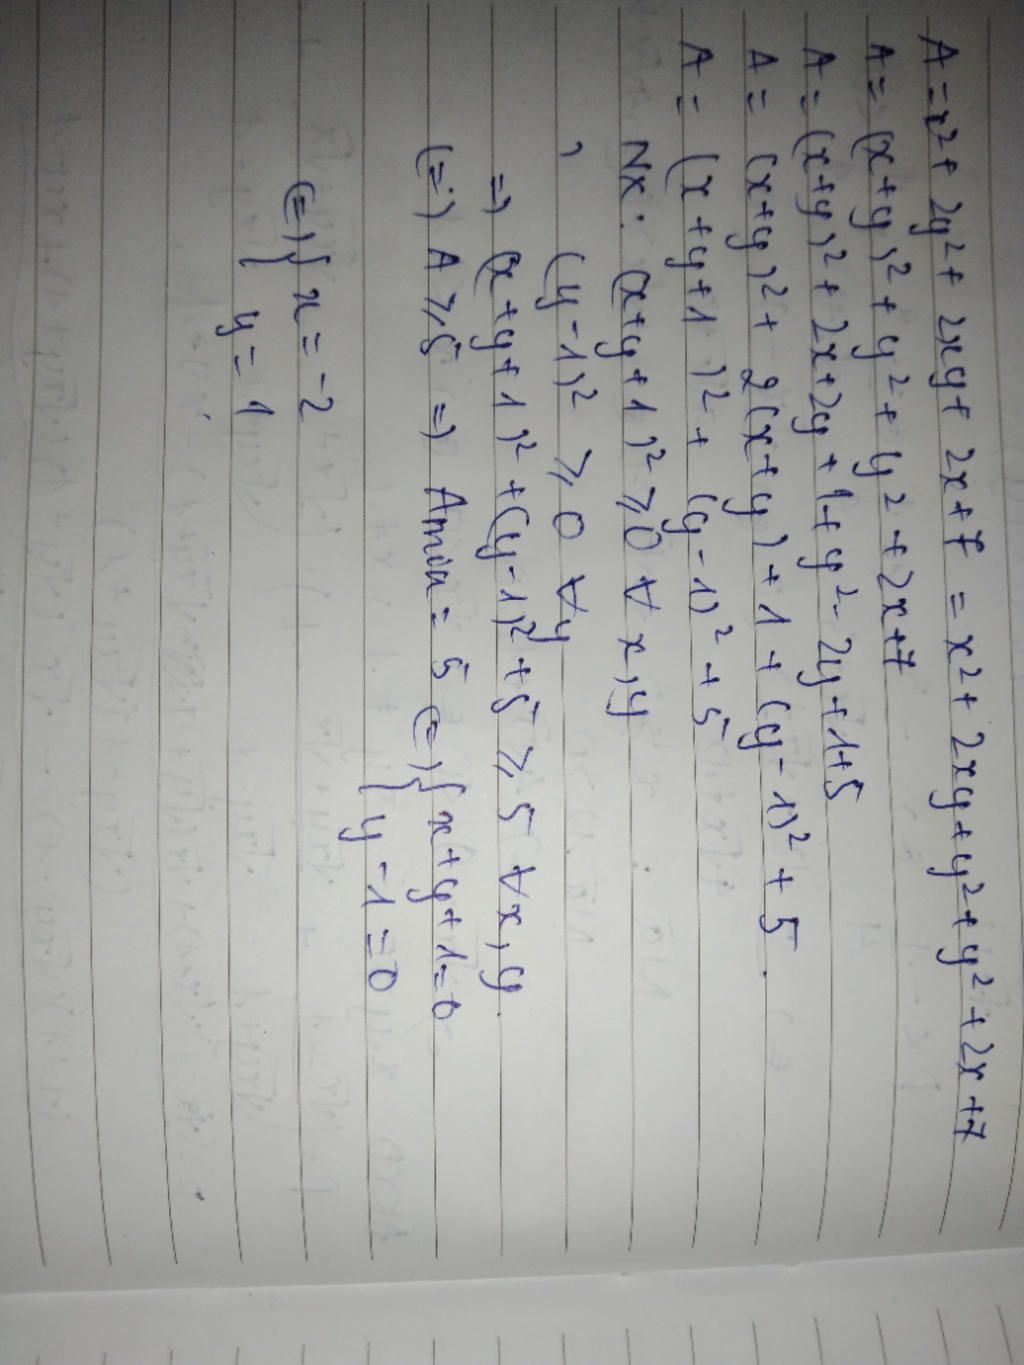 A = x² + 2y² + 2xy + 2x + 7 = x² + 2xy + y² + y² + 2x + 7
A = (x + y)² + y² + y² + 2x + 7
A = (x + y)² + 2x + 2y + 1 + y² - 2y + 1 + 5
A = (x + y)² + 2(x + y) + 1 + (y - 1)² + 5.
A = (x + y + 1)² + (y - 1)² + 5
Nx: (x + y + 1)² ≥ 0 ∀ x, y
, (y - 1)² ≥ 0 ∀y
=) (x + y + 1)² + (y - 1)² + 5 ≥ 5 ∀x, y.
(=) A ≥ 5 =) Amin = 5 (=) { x + y + 1 = 0
y - 1 = 0
(=) { x = -2
y = 1